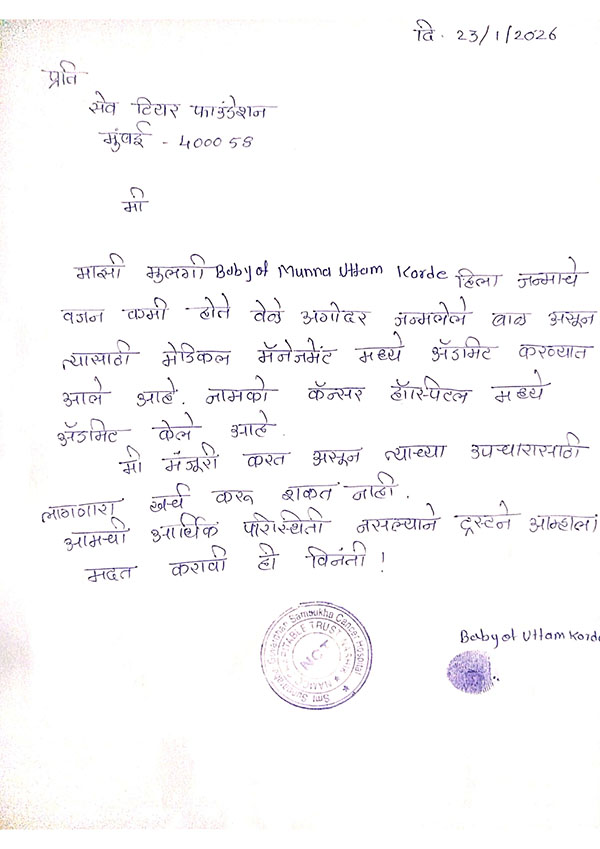 दि. 23/1/2026
प्रति
सेव टियर फाउंडेशन
मुंबई - 400058
मी
माझी मुलगी Baby of Munna Uttam Korde हिला जन्माचे
वजन कमी होते वेळे अगोदर जन्मलेले बाळ असून
त्यासाठी मेडिकल मॅनेजमेंट मध्ये ॲडमिट करण्यात
आले आहे. नामको कॅन्सर हॉस्पिटल मध्ये
ॲडमिट केले आहे.
मी मंजूरी करत असून त्याच्या उपचारासाठी
लागणारा खर्च करू शकत नाही.
आमची आर्थिक परिस्थिती नसल्याने ट्रस्टने आम्हाला
मदत करावी ही विनंती !
Baby of Uttam Korde
Cancer Hospital
CHARITABLE TRUST
NCT